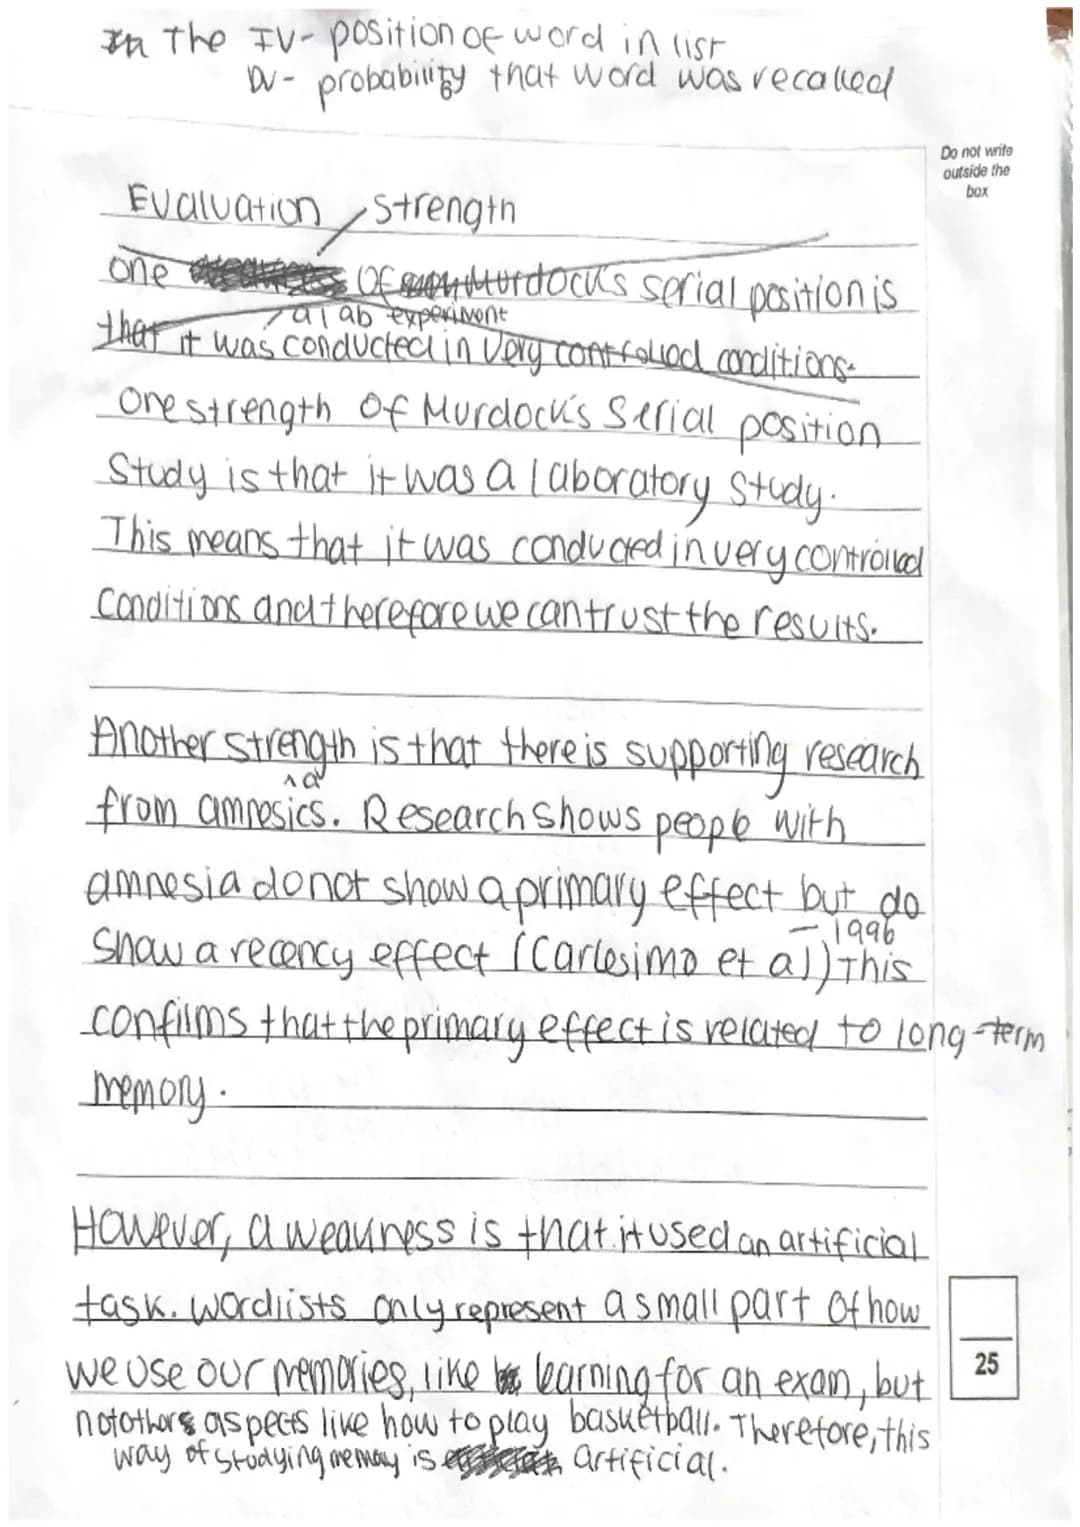 In The IV- position of word in list
DV- probability that word was recalled
Do not write
outside the
box
Evaluation / strength
one of Murdock's serial position is
a lab experiment
that it was conducted in very controlled conditions.
one strength of Murdock's Serial position
Study is that it was a laboratory study.
This means that it was conducted in very controlled
conditions and therefore we can trust the results.
Another strength is that there is supporting research
from amnesics. Research shows people with
amnesia do not show a primary effect but do
- 1996
show a recency effect (Carlesimo et al) This
confilms that the primary effect is related to long-term
memory.
However, a weakness is that it used an artificial
task. Wordlists only represent a small part of how
we use our memories, like learning for an exam, but
25
not others aspects like how to play basketball. Therefore, this
way of studying memory is artificial.